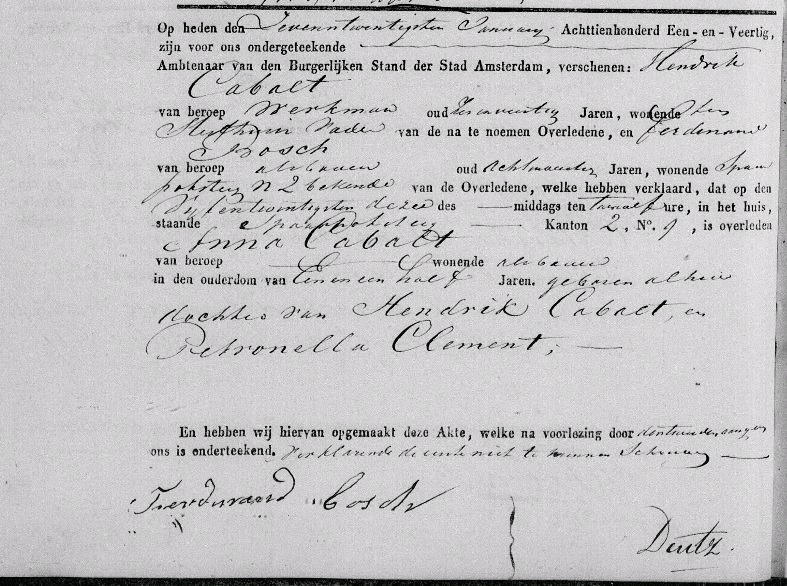 Op heden den Zevenentwintigsten January Achttienhonderd Een-en-Veertig,
zijn voor ons ondergeteekende
Ambtenaar van den Burgerlijken Stand der Stad Amsterdam, verschenen: Hendrik
Cabalt
van beroep Werkman oud Jaren, wonende
vader van de na te noemen Overledene, en Ferdinand
Bosch
van beroep als boven oud Jaren, wonende
N 2 bekende van de Overledene, welke hebben verklaard, dat op den
Vyfentwintigsten dezer des — middags ten twaalf ure, in het huis,
staande Kanton 2, No. 9, is overleden
Anna Cabalt
van beroep — wonende als boven
in den ouderdom van Een en een half Jaren. geboren alhier
dochter van Hendrik Cabalt, en
Petronella Clement; —
En hebben wij hiervan opgemaakt deze Akte, welke na voorlezing door
ons is onderteekend. Verklarende de eerste niet te kunnen Schryven —
Bosch
Deutz.